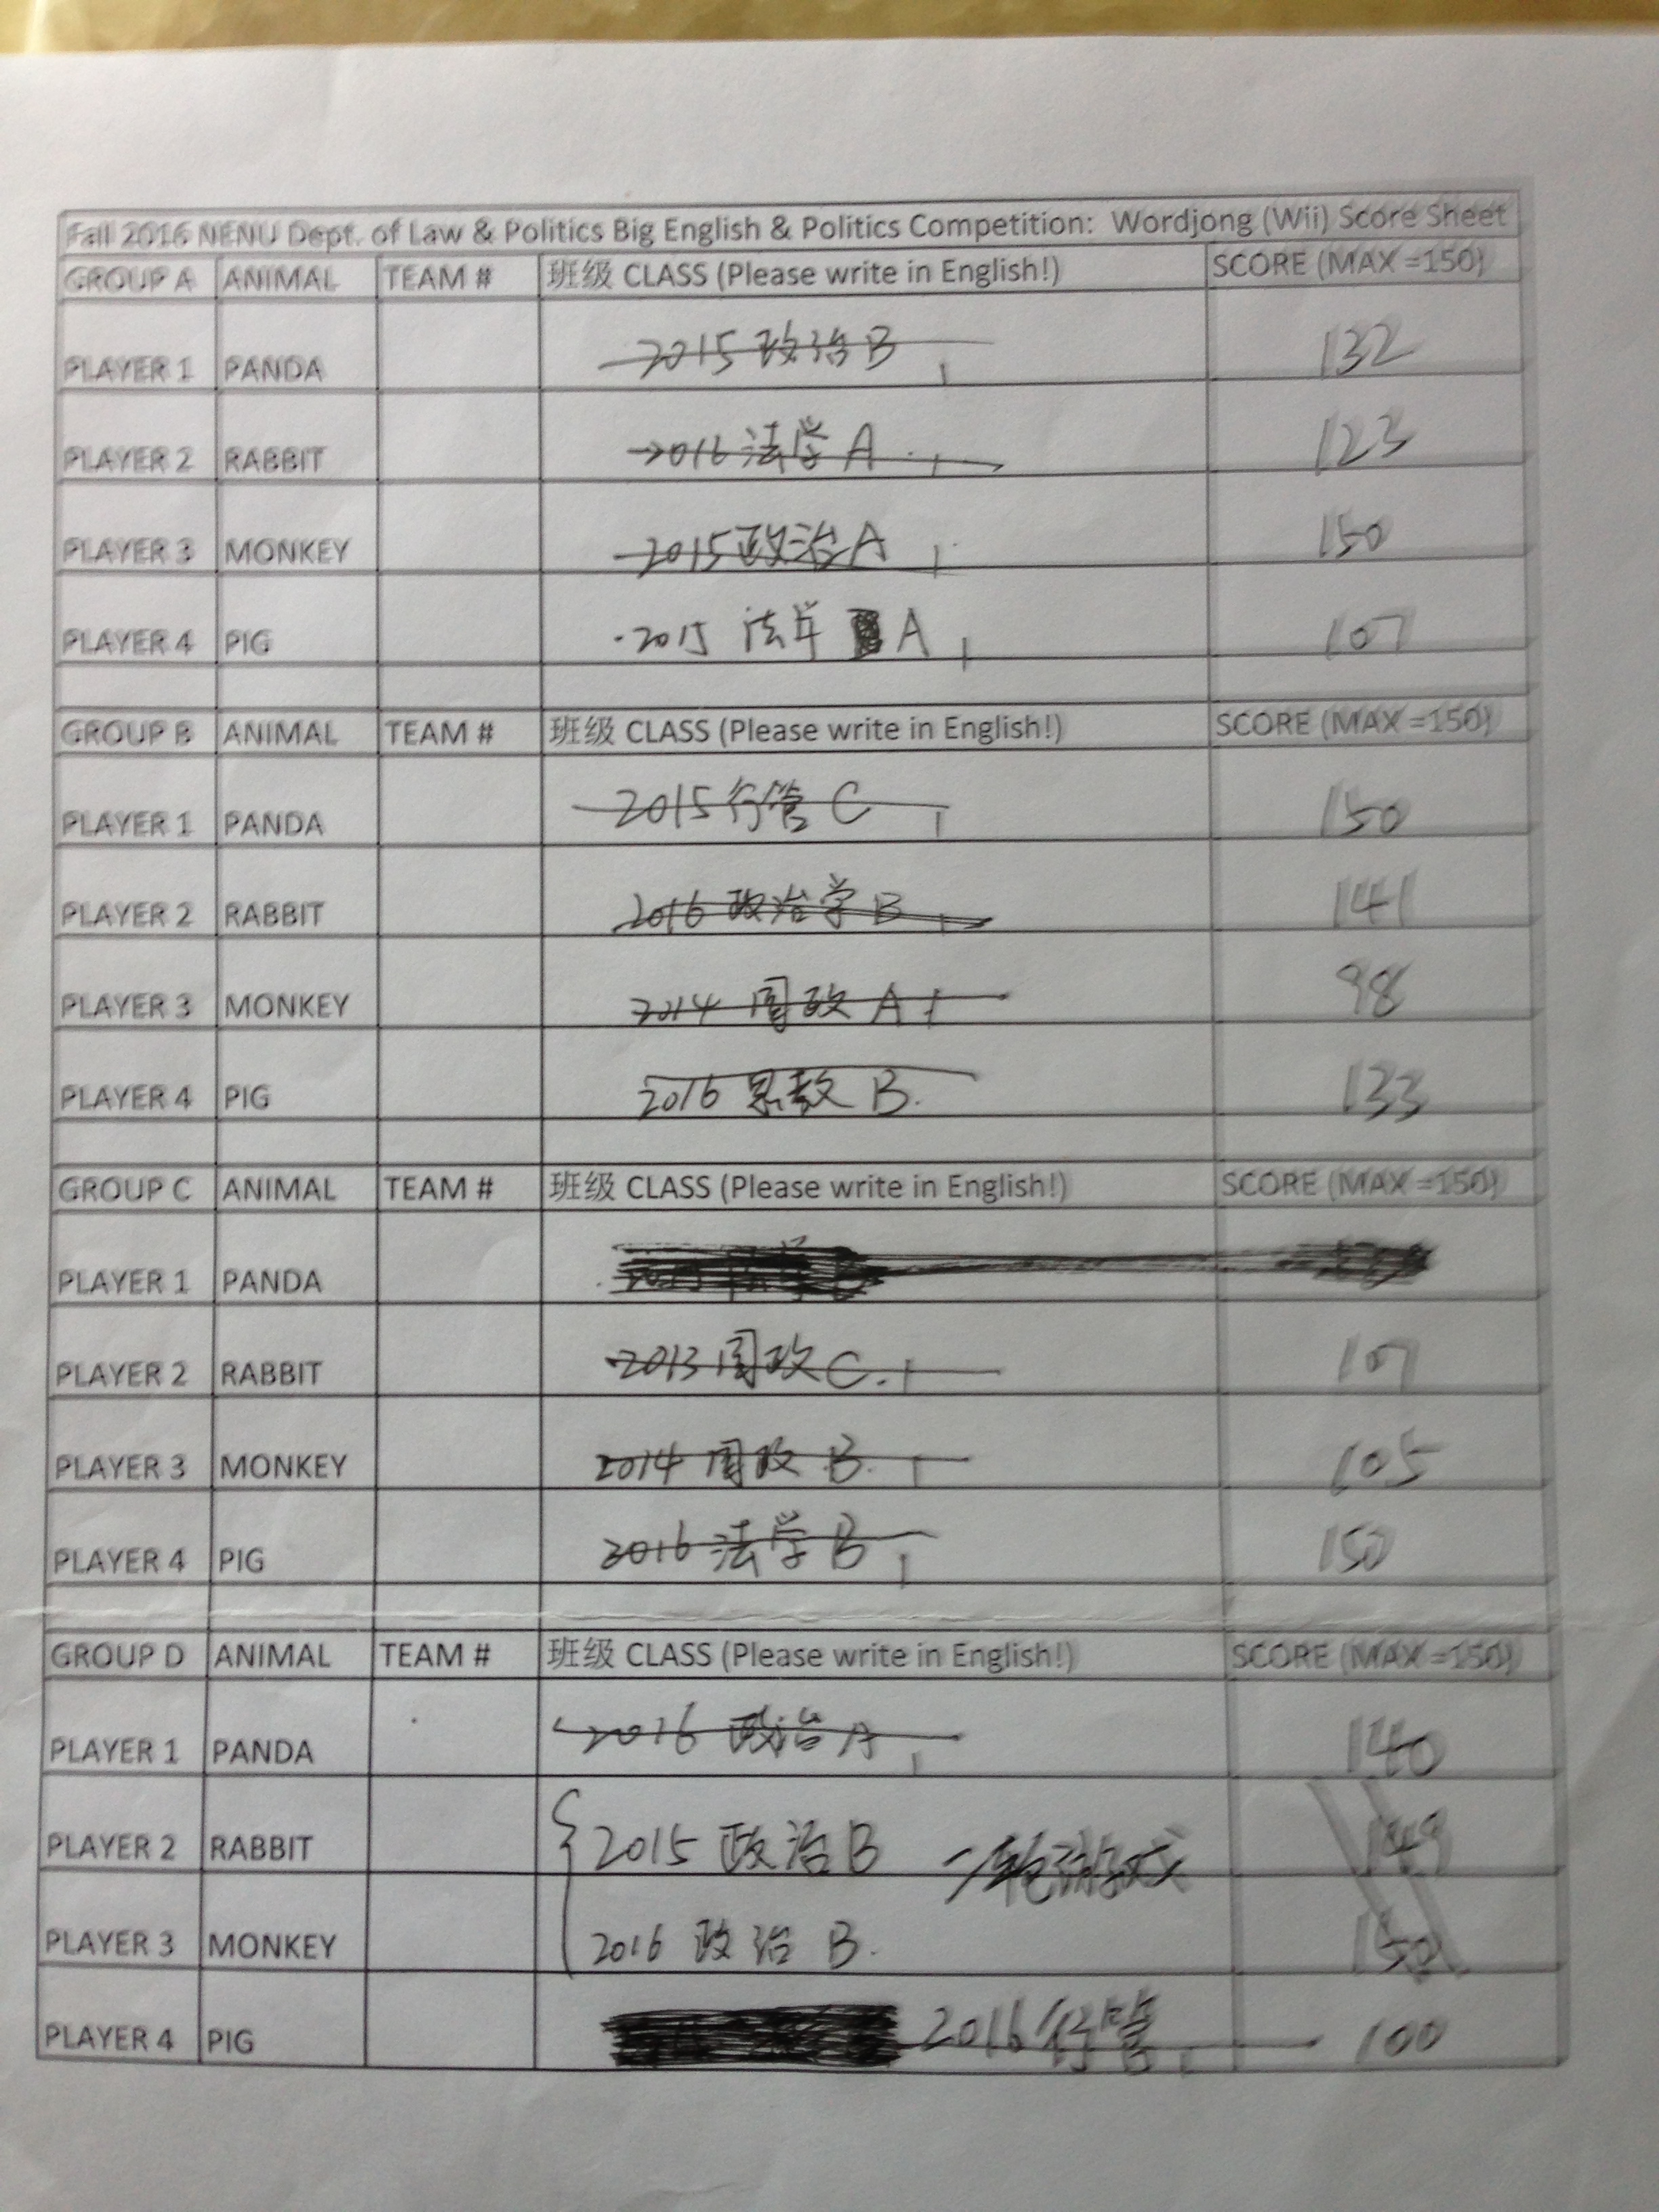 Fall 2016 NENU Dept. of Law & Politics Big English & Politics Competition: Wordjong (Wii) Score Sheet
GROUP A ANIMAL TEAM # 班级 CLASS (Please write in English!) SCORE (MAX =150)
PLAYER 1 PANDA 2015 政治 B 132
PLAYER 2 RABBIT 2016 法学 A 123
PLAYER 3 MONKEY 2015 政治 A 150
PLAYER 4 PIG 2015 法学 A 107
GROUP B ANIMAL TEAM # 班级 CLASS (Please write in English!) SCORE (MAX =150)
PLAYER 1 PANDA 2015 行管 C 150
PLAYER 2 RABBIT 2016 政治学 B 141
PLAYER 3 MONKEY 2014 国政 A 98
PLAYER 4 PIG 2016 思教 B. 133
GROUP C ANIMAL TEAM # 班级 CLASS (Please write in English!) SCORE (MAX =150)
PLAYER 1 PANDA
PLAYER 2 RABBIT 2013 国政 C. 107
PLAYER 3 MONKEY 2014 国政 B. 105
PLAYER 4 PIG 2016 法学 B 150
GROUP D ANIMAL TEAM # 班级 CLASS (Please write in English!) SCORE (MAX =150)
PLAYER 1 PANDA 2016 政治 A 140
PLAYER 2 RABBIT 2015 政治 B 二轮游戏 149
PLAYER 3 MONKEY 2016 政治 B. 150
PLAYER 4 PIG 2016 行管 100